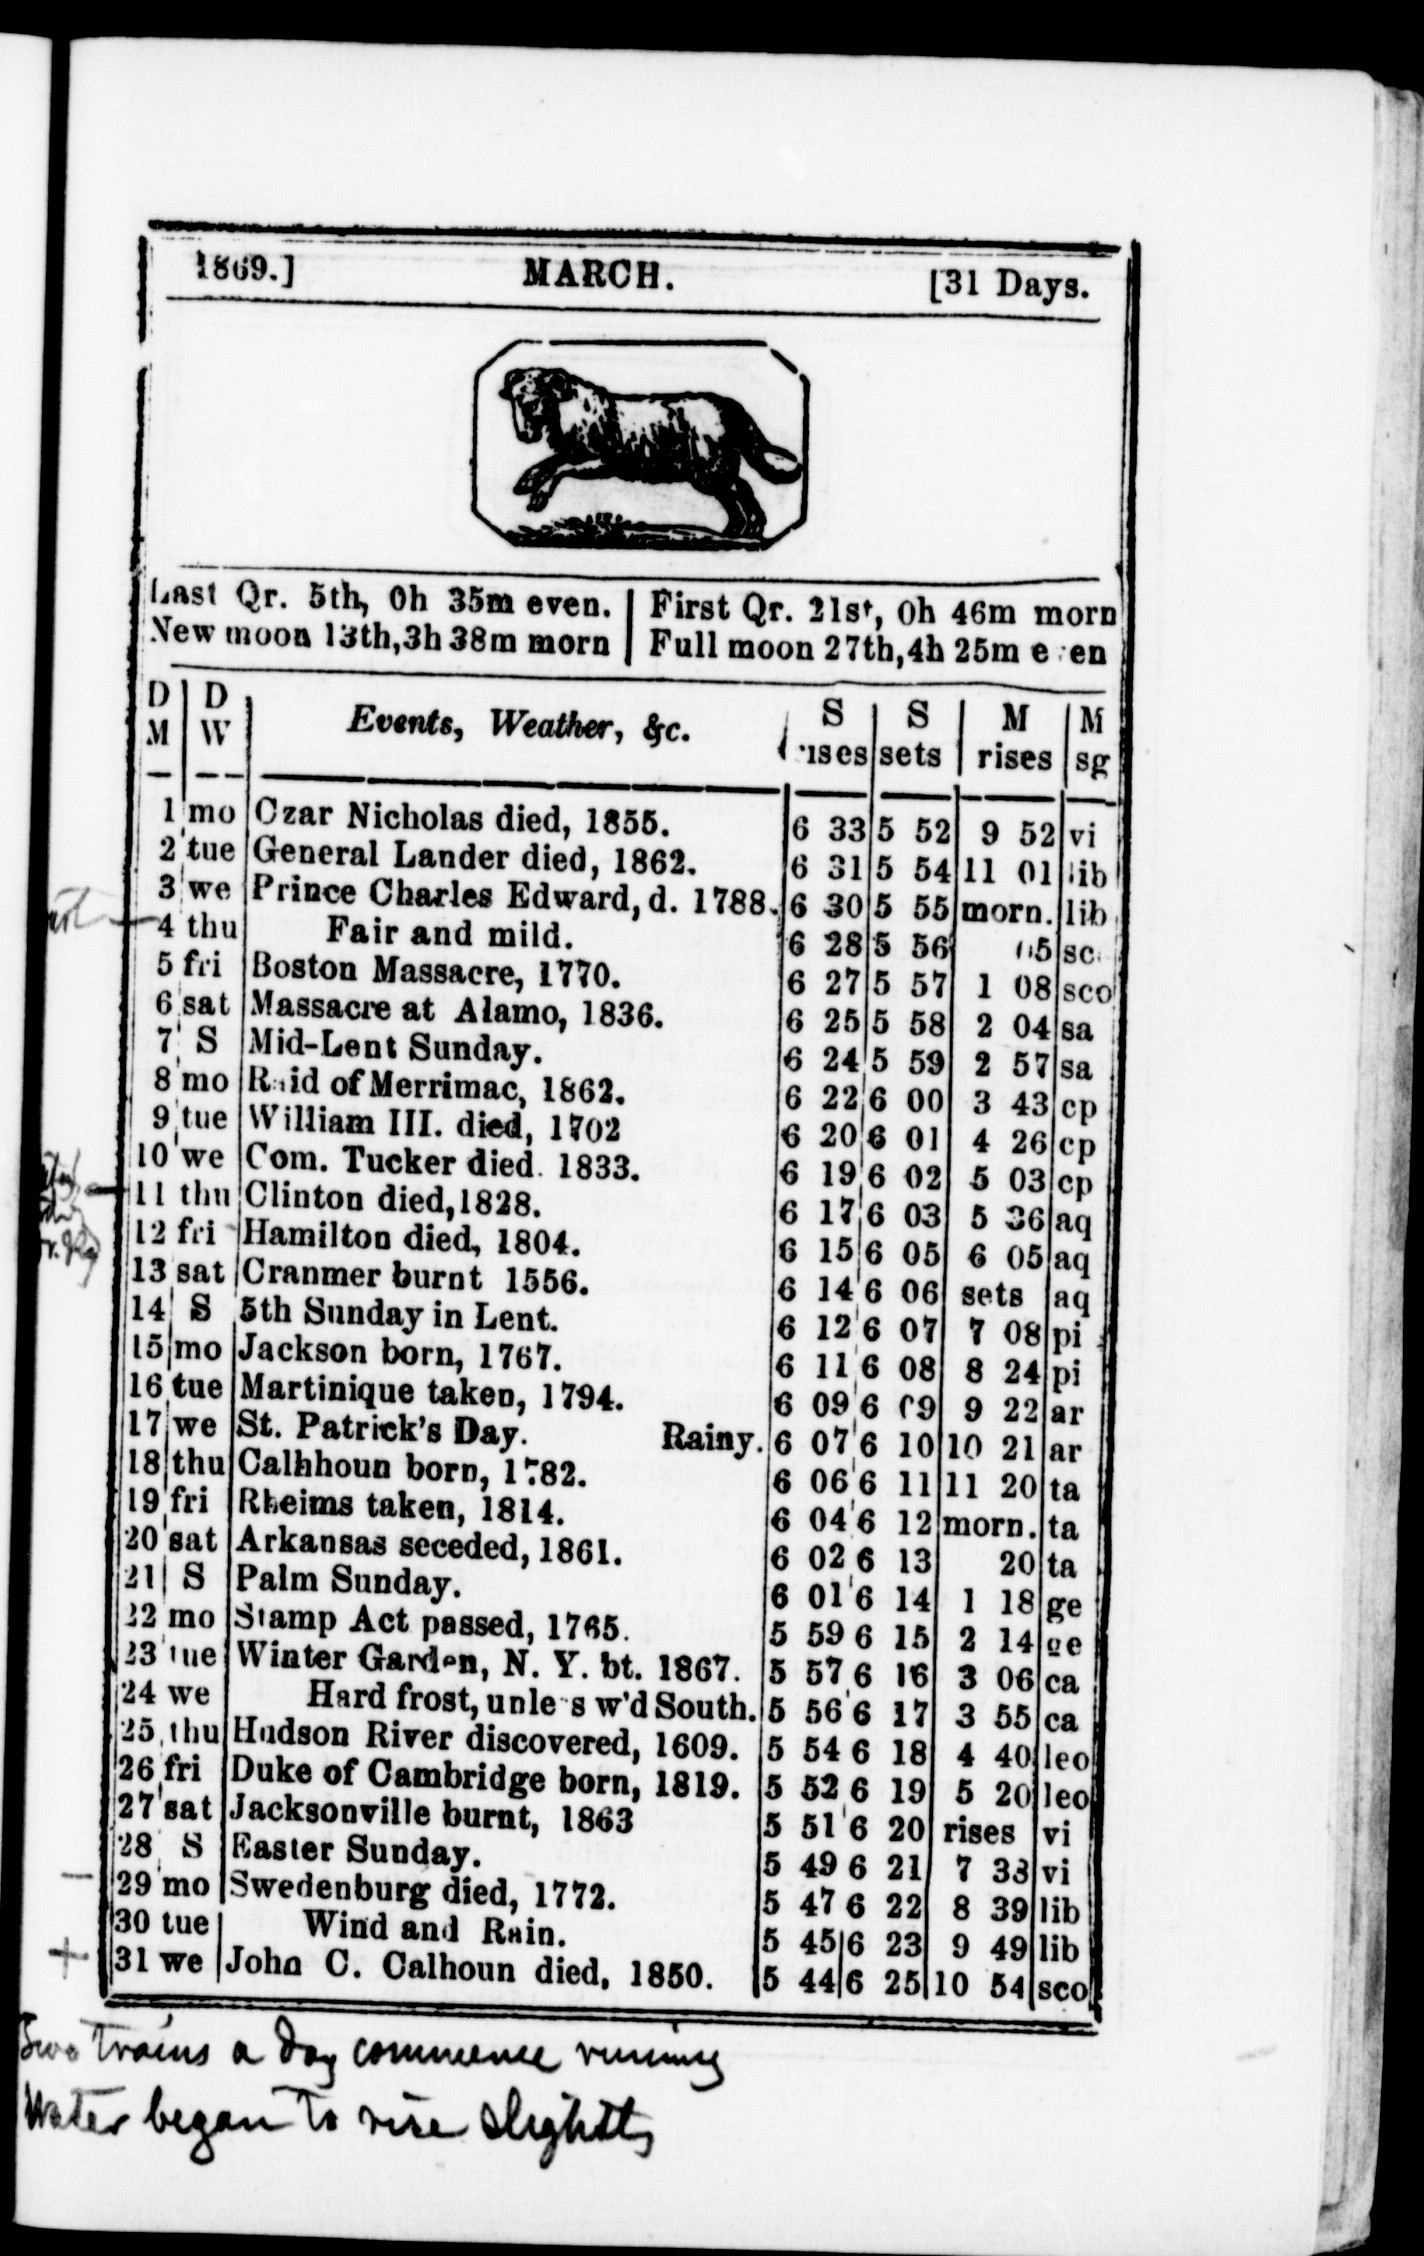 1869.] MARCH. [31 Days.
Last Qr. 5th, 0h 35m even. | First Qr. 21st, 0h 46m morn
New moon 13th, 3h 38m morn | Full moon 27th, 4h 25m even
D M | D W | Events, Weather, &c. | S rises | S sets | M rises | M sg
1 mo Czar Nicholas died, 1855. 6 33 5 52 9 52 vi
2 tue General Lander died, 1862. 6 31 5 54 11 01 lib
3 we Prince Charles Edward, d. 1788. 6 30 5 55 morn. lib
4 thu Fair and mild. 6 28 5 56 05 sc
5 fri Boston Massacre, 1770. 6 27 5 57 1 08 sco
6 sat Massacre at Alamo, 1836. 6 25 5 58 2 04 sa
7 S Mid-Lent Sunday. 6 24 5 59 2 57 sa
8 mo Raid of Merrimac, 1862. 6 22 6 00 3 43 cp
9 tue William III. died, 1702 6 20 6 01 4 26 cp
10 we Com. Tucker died. 1833. 6 19 6 02 5 03 cp
11 thu Clinton died, 1828. 6 17 6 03 5 36 aq
12 fri Hamilton died, 1804. 6 15 6 05 6 05 aq
13 sat Cranmer burnt 1556. 6 14 6 06 sets aq
14 S 5th Sunday in Lent. 6 12 6 07 7 08 pi
15 mo Jackson born, 1767. 6 11 6 08 8 24 pi
16 tue Martinique taken, 1794. 6 09 6 09 9 22 ar
17 we St. Patrick's Day. Rainy. 6 07 6 10 10 21 ar
18 thu Calhhoun born, 1782. 6 06 6 11 11 20 ta
19 fri Rheims taken, 1814. 6 04 6 12 morn. ta
20 sat Arkansas seceded, 1861. 6 02 6 13 20 ta
21 S Palm Sunday. 6 01 6 14 1 18 ge
22 mo Stamp Act passed, 1765. 5 59 6 15 2 14 ge
23 tue Winter Garden, N. Y. bt. 1867. 5 57 6 16 3 06 ca
24 we Hard frost, unless w'd South. 5 56 6 17 3 55 ca
25 thu Hudson River discovered, 1609. 5 54 6 18 4 40 leo
26 fri Duke of Cambridge born, 1819. 5 52 6 19 5 20 leo
27 sat Jacksonville burnt, 1863 5 51 6 20 rises vi
28 S Easter Sunday. 5 49 6 21 7 33 vi
29 mo Swedenburg died, 1772. 5 47 6 22 8 39 lib
30 tue Wind and Rain. 5 45 6 23 9 49 lib
31 we John C. Calhoun died, 1850. 5 44 6 25 10 54 sco
Two trains a day commence running
Water began to rise slightly